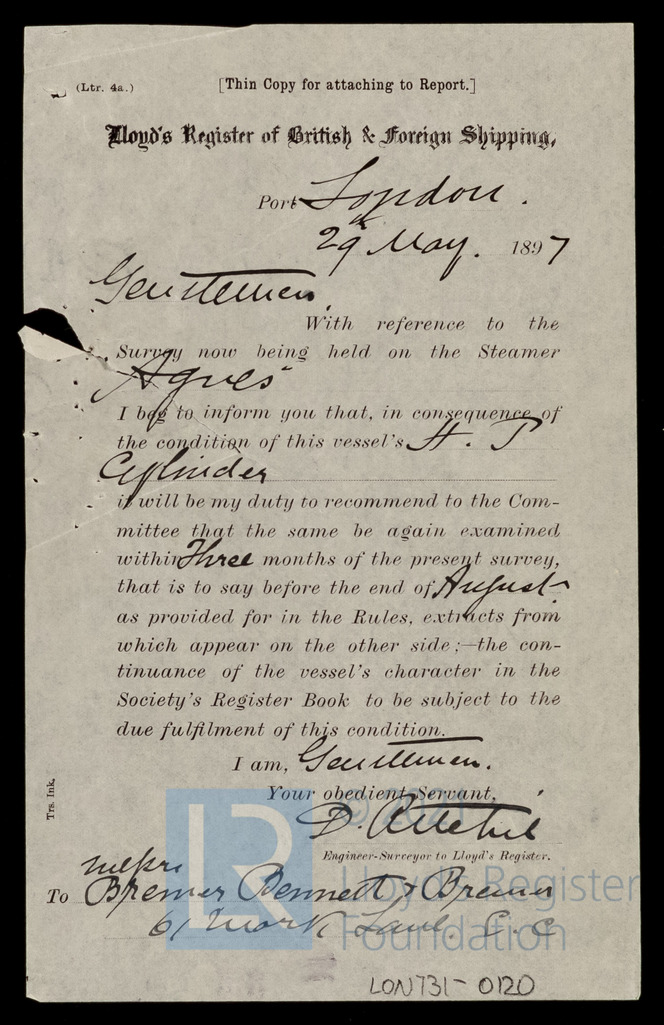 (Ltr. 4a.) [Thin Copy for attaching to Report.]
Lloyd's Register of British & Foreign Shipping,
Port London.
29 May. 1897
Gentlemen,
With reference to the
Survey now being held on the Steamer
Agnes
I beg to inform you that, in consequence of
the condition of this vessel's H. P
Cylinder
it will be my duty to recommend to the Com-
mittee that the same be again examined
within Three months of the present survey,
that is to say before the end of August
as provided for in the Rules, extracts from
which appear on the other side;—the con-
tinuance of the vessel's character in the
Society's Register Book to be subject to the
due fulfilment of this condition.
I am, Gentlemen.
Your obedient Servant,
D.
Engineer-Surveyor to Lloyd's Register.
Messrs
To Bremer Bennett & Bremer
61 Mark Lane E.C
Trs. Ink.
LR
© 2021
Lloyd's Register
Foundation
LON731-0120